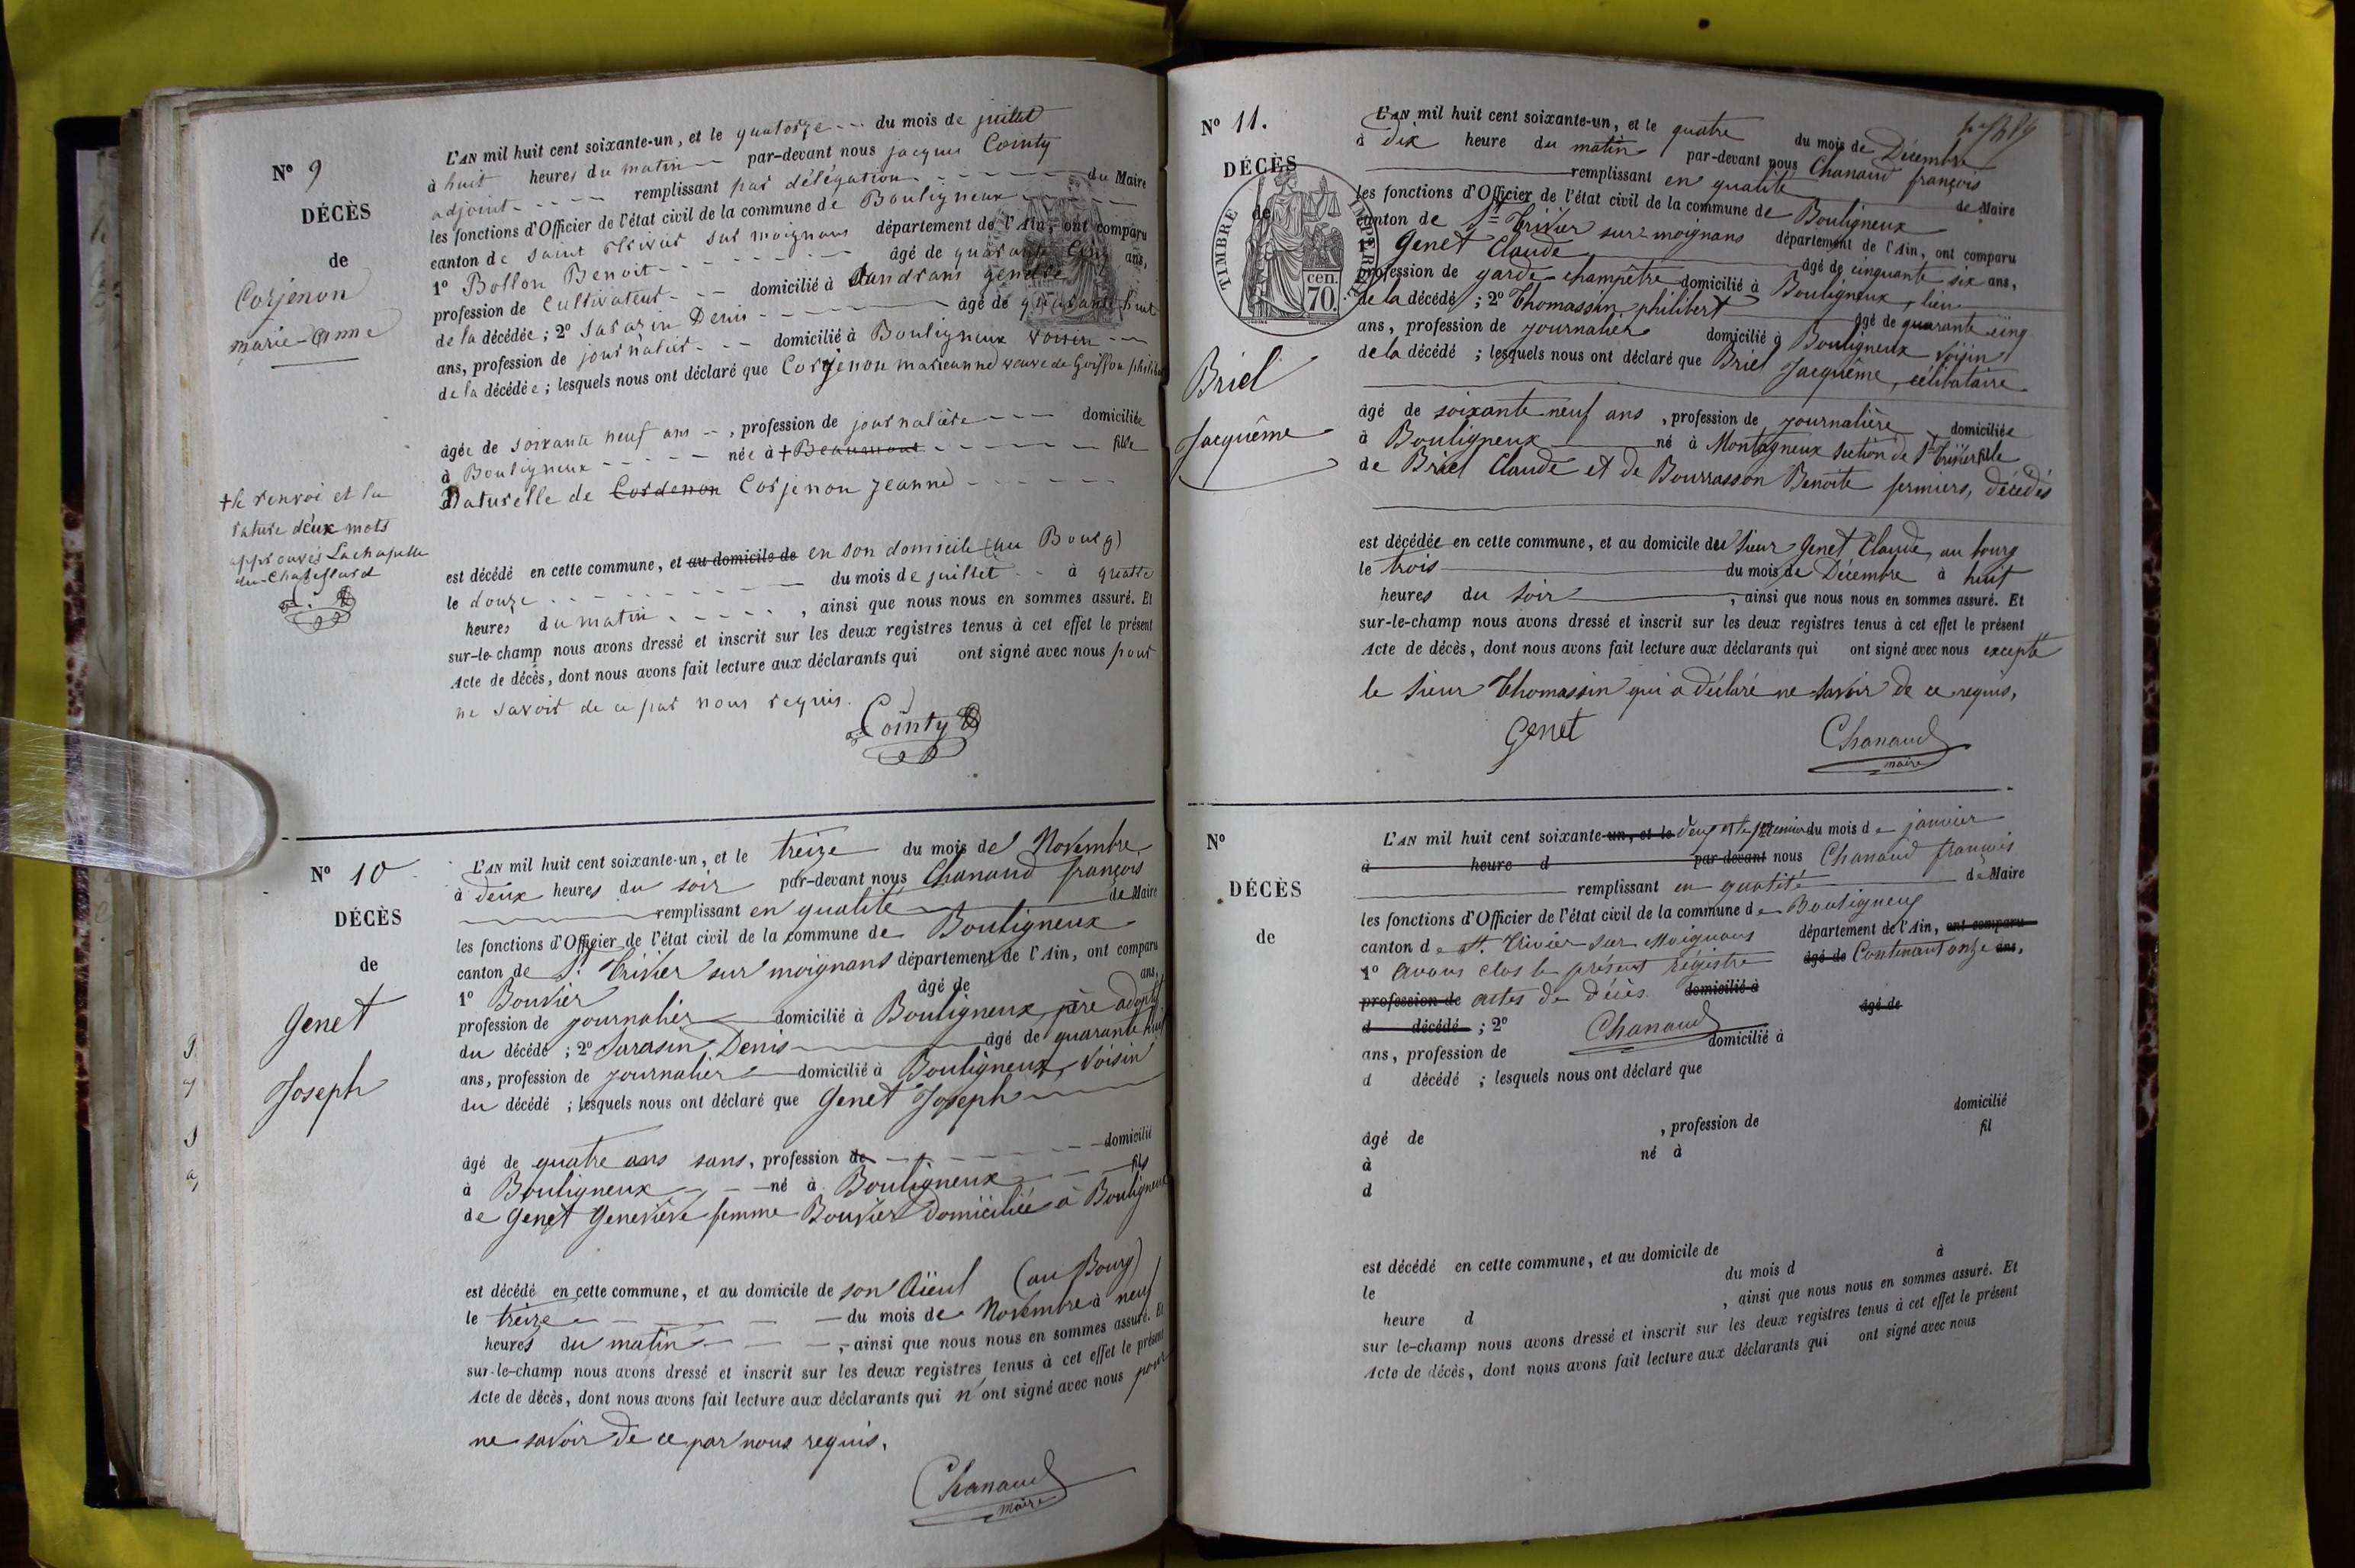 N° 9
DÉCÈS
de
Corjenon
marie-anne
L'AN mil huit cent soixante-un, et le quatorze du mois de juillet
à huit heures du matin par-devant nous jacques Cointy
adjoint remplissant par délégation du Maire
les fonctions d'Officier de l'état civil de la commune de Bouligneux
canton de saint trivier sur moignans département de l'Ain, ont comparu
1° Bollon Benoit âgé de quarante cinq ans,
profession de cultivateur domicilié à Sandrans gendre
de la décédée ; 2° Sarazin Denis âgé de quarante huit
ans, profession de journalier domicilié à Bouligneux voisin
de la décédée ; lesquels nous ont déclaré que Corjenon marieanne veuve de Goiffon philibert
âgée de soixante neuf ans, profession de journalière domiciliée
à Bouligneux née à + Beaumont fille
Naturelle de Cordenon Corjenon jeanne
+ le renvoi et la
rature deux mots
approuvés Lachapelle
du Chatellard
est décédé en cette commune, et au domicile de en son domicile (au Bourg)
le douze du mois de juillet à quatre
heures du matin, ainsi que nous nous en sommes assuré. Et
sur-le-champ nous avons dressé et inscrit sur les deux registres tenus à cet effet le présent
Acte de décès, dont nous avons fait lecture aux déclarants qui ont signé avec nous pour
ne savoir de ce par nous requis.
Cointy
N° 10
DÉCÈS
de
Genet
Joseph
L'AN mil huit cent soixante-un, et le treize du mois de Novembre
à deux heures du soir par-devant nous Chanaud françois
remplissant en qualité de Maire
les fonctions d'Officier de l'état civil de la commune de Bouligneux
canton de St. Trivier sur moignans département de l'Ain, ont comparu
1° Bouvier âgé de ans,
profession de journalier domicilié à Bouligneux, père adoptif
du décédé ; 2° Sarasin Denis âgé de quarante huit
ans, profession de journalier domicilié à Bouligneux, voisin
du décédé ; lesquels nous ont déclaré que Genet Joseph
âgé de quatre ans sans, profession de domicilié
à Bouligneux né à Bouligneux fils
de Genet Geneviève femme Bouvier domiciliée à Bouligneux
est décédé en cette commune, et au domicile de son Aïeul (au Bourg)
le treize du mois de Novembre à neuf
heures du matin, ainsi que nous nous en sommes assuré. Et
sur-le-champ nous avons dressé et inscrit sur les deux registres tenus à cet effet le présent
Acte de décès, dont nous avons fait lecture aux déclarants qui n'ont signé avec nous pour
ne savoir de ce par nous requis.
Chanaud
maire
N° 11.
DÉCÈS
de
TIMBRE IMPÉRIAL
70 cen.
Briel
Jacquême
L'AN mil huit cent soixante-un, et le quatre du mois de Décembre
à dix heure du matin par-devant nous Chanaud françois
remplissant en qualité de Maire
les fonctions d'Officier de l'état civil de la commune de Bouligneux
canton de St Trivier sur moignans département de l'Ain, ont comparu
1° Genet Claude âgé de cinquante six ans,
profession de garde champêtre domicilié à Bouligneux, lieu
de la décédé ; 2° Thomassin philibert âgé de quarante cinq
ans, profession de journalier domicilié à Bouligneux voisin
de la décédé ; lesquels nous ont déclaré que Briel Jacquême, célibataire
âgé de soixante neuf ans, profession de journalière, domiciliée
à Bouligneux né à Montagneux section de St Trivier fille
de Briel Claude et de Bourrasson Benoîte fermiers, décédés
est décédée en cette commune, et au domicile du Sieur Genet Claude, au bourg
le trois du mois de Décembre à huit
heures du soir, ainsi que nous nous en sommes assuré. Et
sur-le-champ nous avons dressé et inscrit sur les deux registres tenus à cet effet le présent
Acte de décès, dont nous avons fait lecture aux déclarants qui ont signé avec nous excepté
le Sieur Thomassin qui a déclaré ne savoir de ce requis,
Genet Chanaud
maire
N°
DÉCÈS
de
L'AN mil huit cent soixante-un, et le deux et le premier du mois de janvier
à heure d par devant nous Chanaud françois
remplissant en qualité de Maire
les fonctions d'Officier de l'état civil de la commune de Bouligneux
canton de St. Trivier sur Moignans département de l'Ain, ont comparu
1° avons clos le présent régistre âgé de Contenant onze ans,
profession de actes de décès. domicilié à
d décédé ; 2° Chanaud âgé de
ans, profession de domicilié à
d décédé ; lesquels nous ont déclaré que
âgé de , profession de domicilié
à né à fil
d
est décédé en cette commune, et au domicile de
le du mois d à
heure d , ainsi que nous nous en sommes assuré. Et
sur le-champ nous avons dressé et inscrit sur les deux registres tenus à cet effet le présent
Acte de décès, dont nous avons fait lecture aux déclarants qui ont signé avec nous